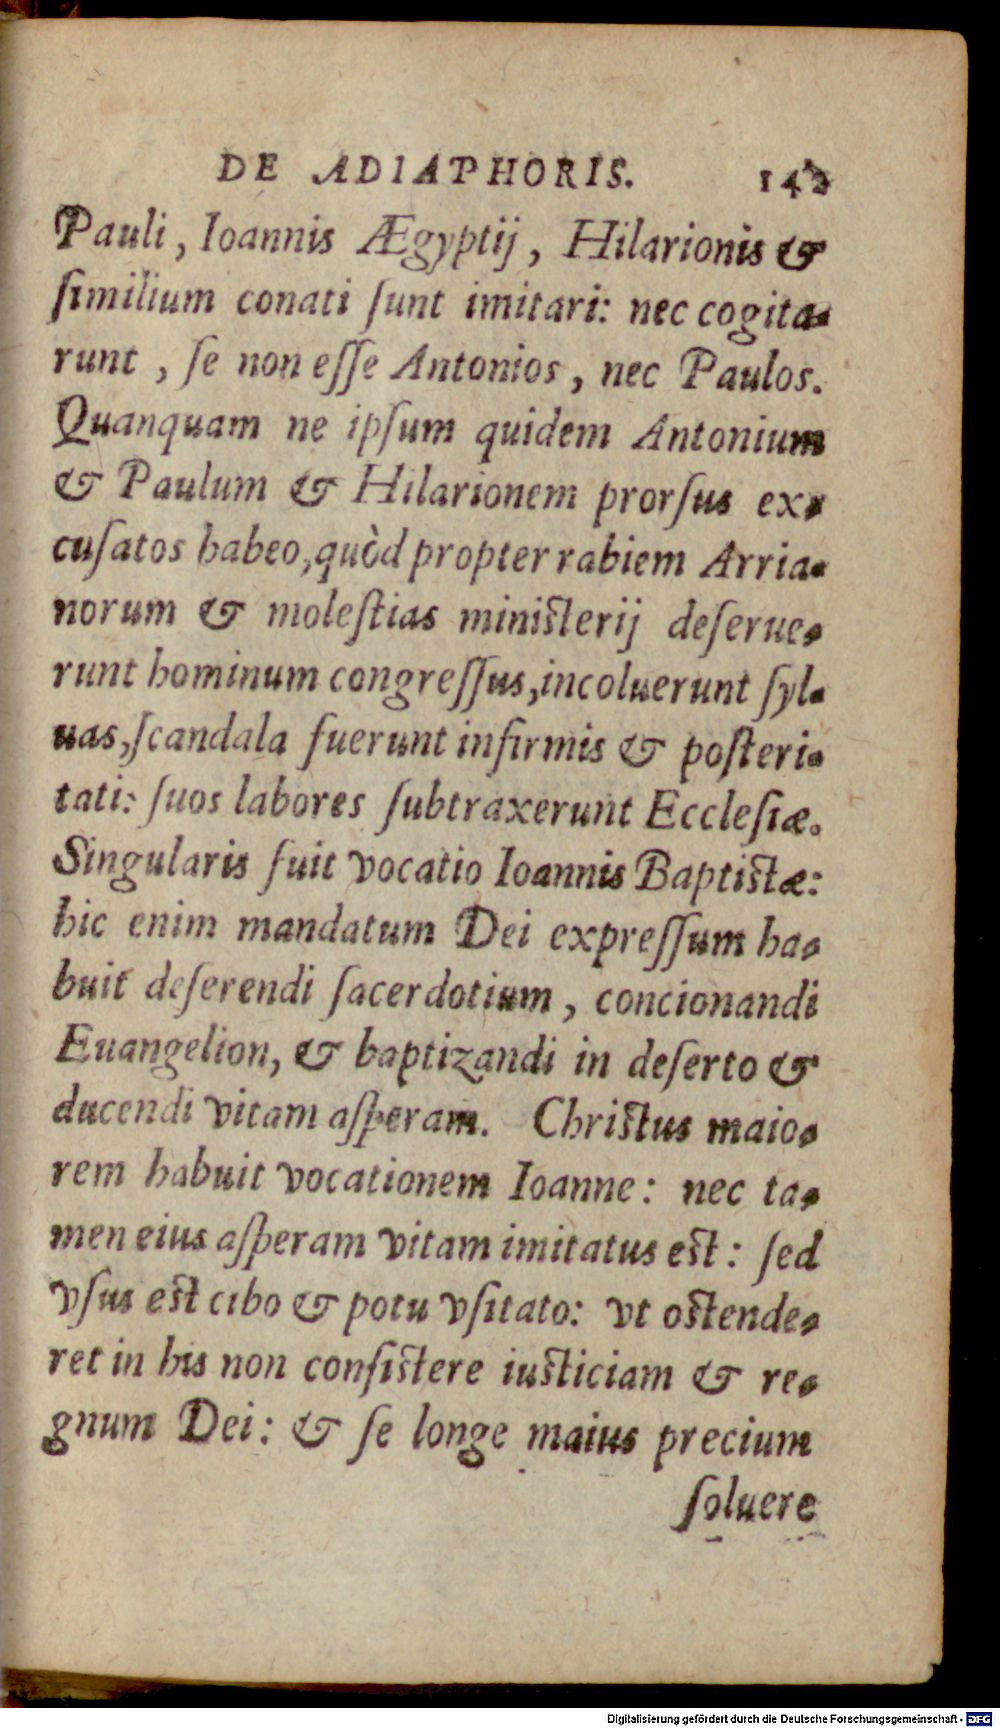 DE ADIAPHORIS. 142
Pauli, Ioannis Ægyptij, Hilarionis &
ſimilium conati ſunt imitari: nec cogita-
runt, ſe non eſſe Antonios, nec Paulos.
Quanquam ne ipſum quidem Antonium
& Paulum & Hilarionem prorſus ex-
cuſatos habeo, quòd propter rabiem Arria-
norum & moleſtias miniſterij deſerue-
runt hominum congreſſus, incoluerunt ſyl-
uas, ſcandala fuerunt infirmis & poſteri-
tati: ſuos labores ſubtraxerunt Eccleſiæ.
Singularis fuit vocatio Ioannis Baptiſtæ:
hic enim mandatum Dei expreſſum ha-
buit deſerendi ſacerdotium, concionandi
Euangelion, & baptizandi in deſerto &
ducendi vitam aſperam. Chriſtus maio-
rem habuit vocationem Ioanne: nec ta-
men eius aſperam vitam imitatus eſt: ſed
vſus eſt cibo & potu vſitato: vt oſtende-
ret in his non conſiſtere iuſticiam & re-
gnum Dei: & ſe longe maius precium
ſoluere
Digitalisierung gefördert durch die Deutsche Forschungsgemeinschaft - DFG